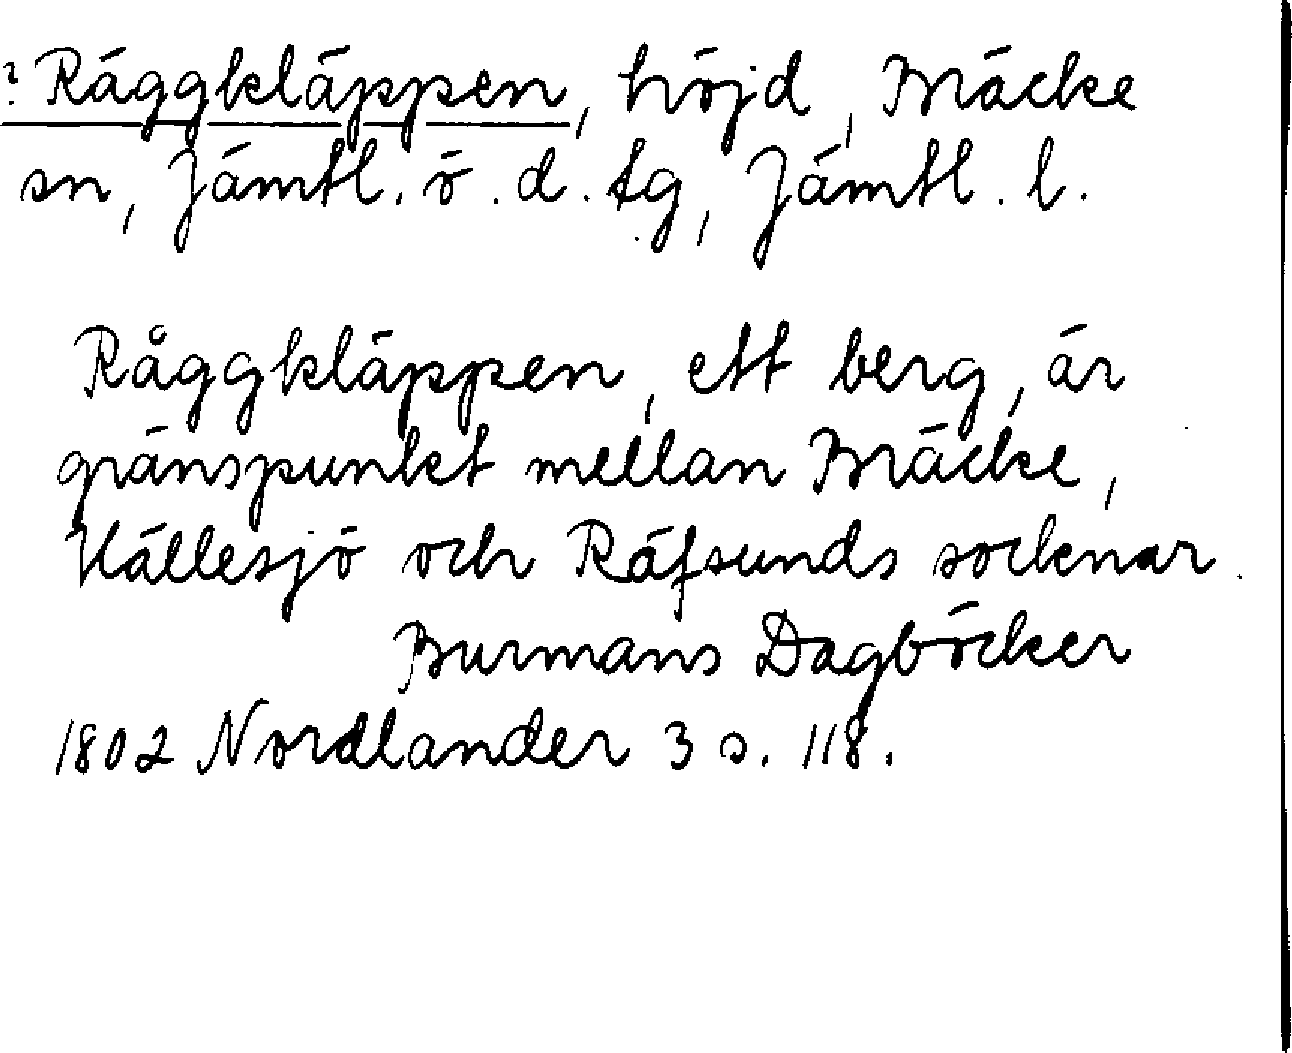 ? Räggkläppen, höjd, Bräcke
sn, Jämtl. ö. d. tg, Jämtl. l.
Råggkläppen, ett berg, är
gränspunkt mellan Bräcke,
Hällesjö och Räfsunds socknar.
Burmans Dagböcker
1802 Nordlander 3 s. 118.